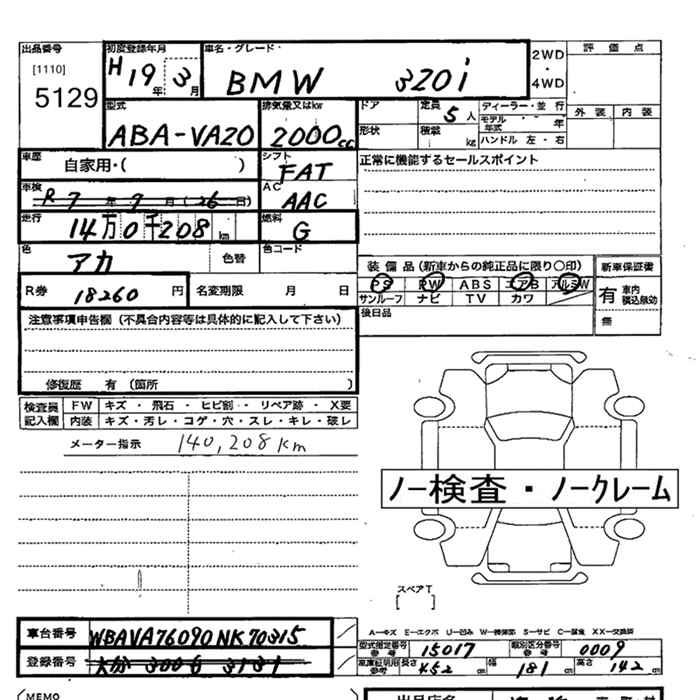 出品番号 初度登録年月 車名・グレード 2WD 評価点
[1110] H19年 3月 BMW 320i ・
5129 4WD
型式 排気量又はkw ドア 定員 5人 ディーラー・並行 外装 内装
ABA-VA20 2000cc 形状 積載 kg モデル年式 年
ハンドル 左・右
車歴 自家用・( ) シフト FAT 正常に機能するセールスポイント
車検 R7年 7月 (26日) AC AAC
走行 14万0千208km 燃料 G
色 アカ 色替 色コード
装備品(新車からの純正品に限り○印) 新車保証書
R券 18260円 名変期限 月 日 PS PW ABS エアB アルミW 有 車内積込無効
サンルーフ ナビ TV カワ 無
注意事項申告欄(不具合内容等は具体的に記入して下さい) 後日品
修復歴 有(箇所 )
検査員記入欄 FW キズ・飛石・ヒビ割・リペア跡・X要
内装 キズ・汚レ・コゲ・穴・スレ・キレ・破レ
メーター指示 140,208km
ノー検査・ノークレーム
スペアT
[ ]
車台番号 WBAVA76090NK70315 A-キズ E-エクボ U-凹み W-補修跡 S-サビ C-腐食 XX-交換済
型式指定番号 15017 類別区分番号 0009
登録番号 大分 300 車庫証明用参考 長さ 452cm 幅 181cm 高さ 142cm
MEMO 出品店名